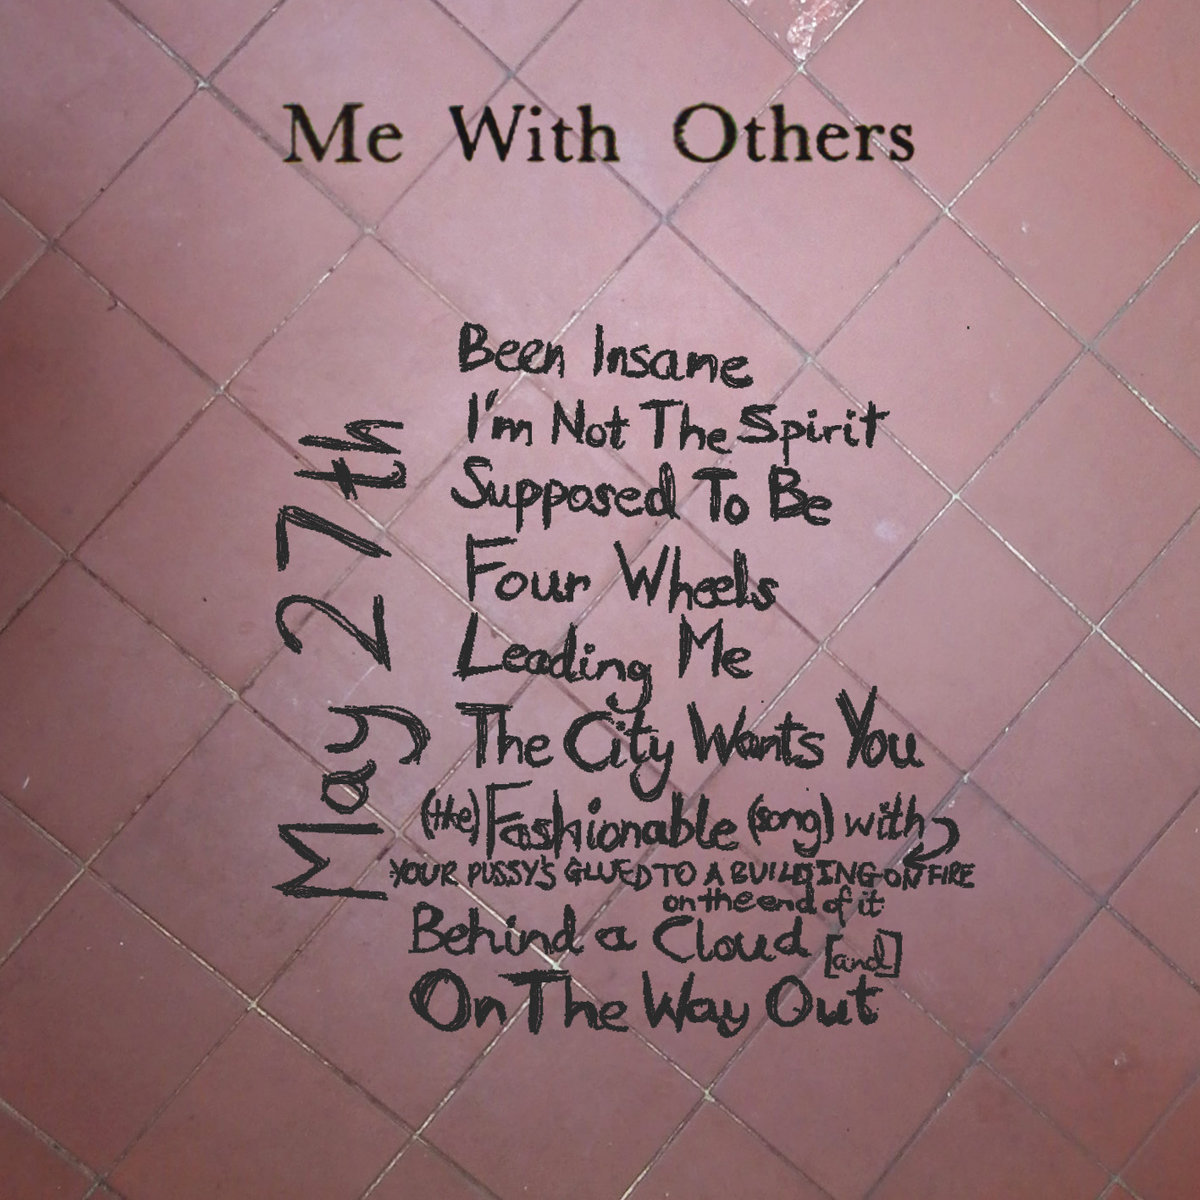 Me With Others
May 27th
Been Insane
I'm Not The Spirit
Supposed To Be
Four Wheels
Leading Me
The City Wants You
(the) Fashionable (song) with
YOUR PUSSY'S GLUED TO A BUILDING ON FIRE
on the end of it
Behind a Cloud [and]
On The Way Out